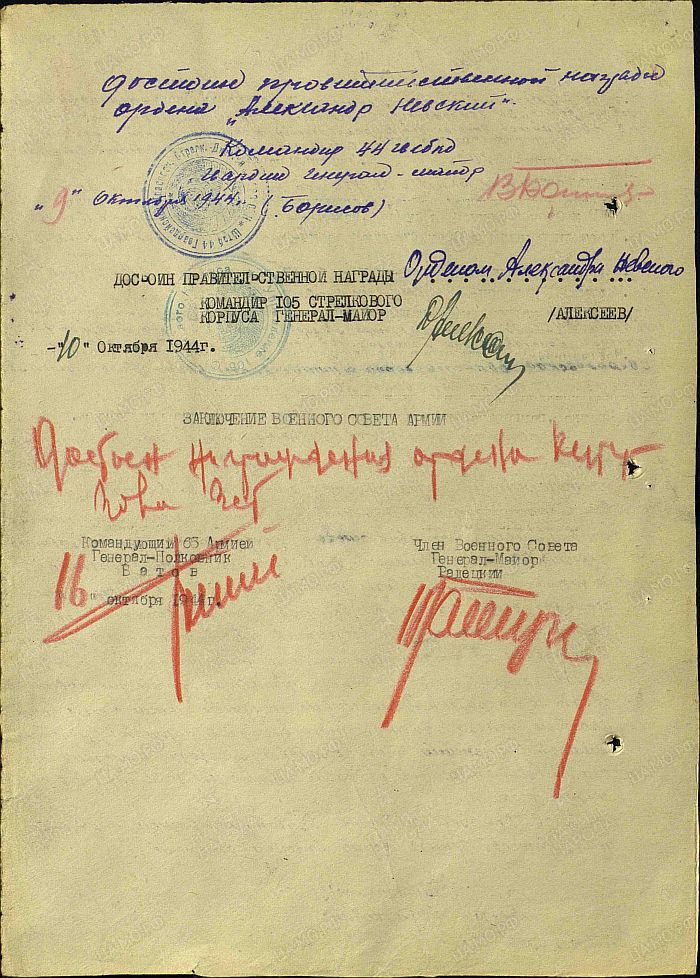 достоин правительственной награды
ордена „Александр Невский".
Командир 44 гв сбкд
гвардии генерал-майор
"9" Октября 1944г. (Борисов)
ДОСТОИН ПРАВИТЕЛЬСТВЕННОЙ НАГРАДЫ Орденом Александра Невского
КОМАНДИР 105 СТРЕЛКОВОГО
КОРПУСА ГЕНЕРАЛ-МАЙОР /АЛЕКСЕЕВ/
-"10" Октября 1944г.
ЗАКЛЮЧЕНИЕ ВОЕННОГО СОВЕТА АРМИИ
Достоен награждения ордена
Командующий 65 Армией
Генерал-Полковник
Батов
16 октября 1944г.
Член Военного Совета
Генерал-Майор
Радецкий